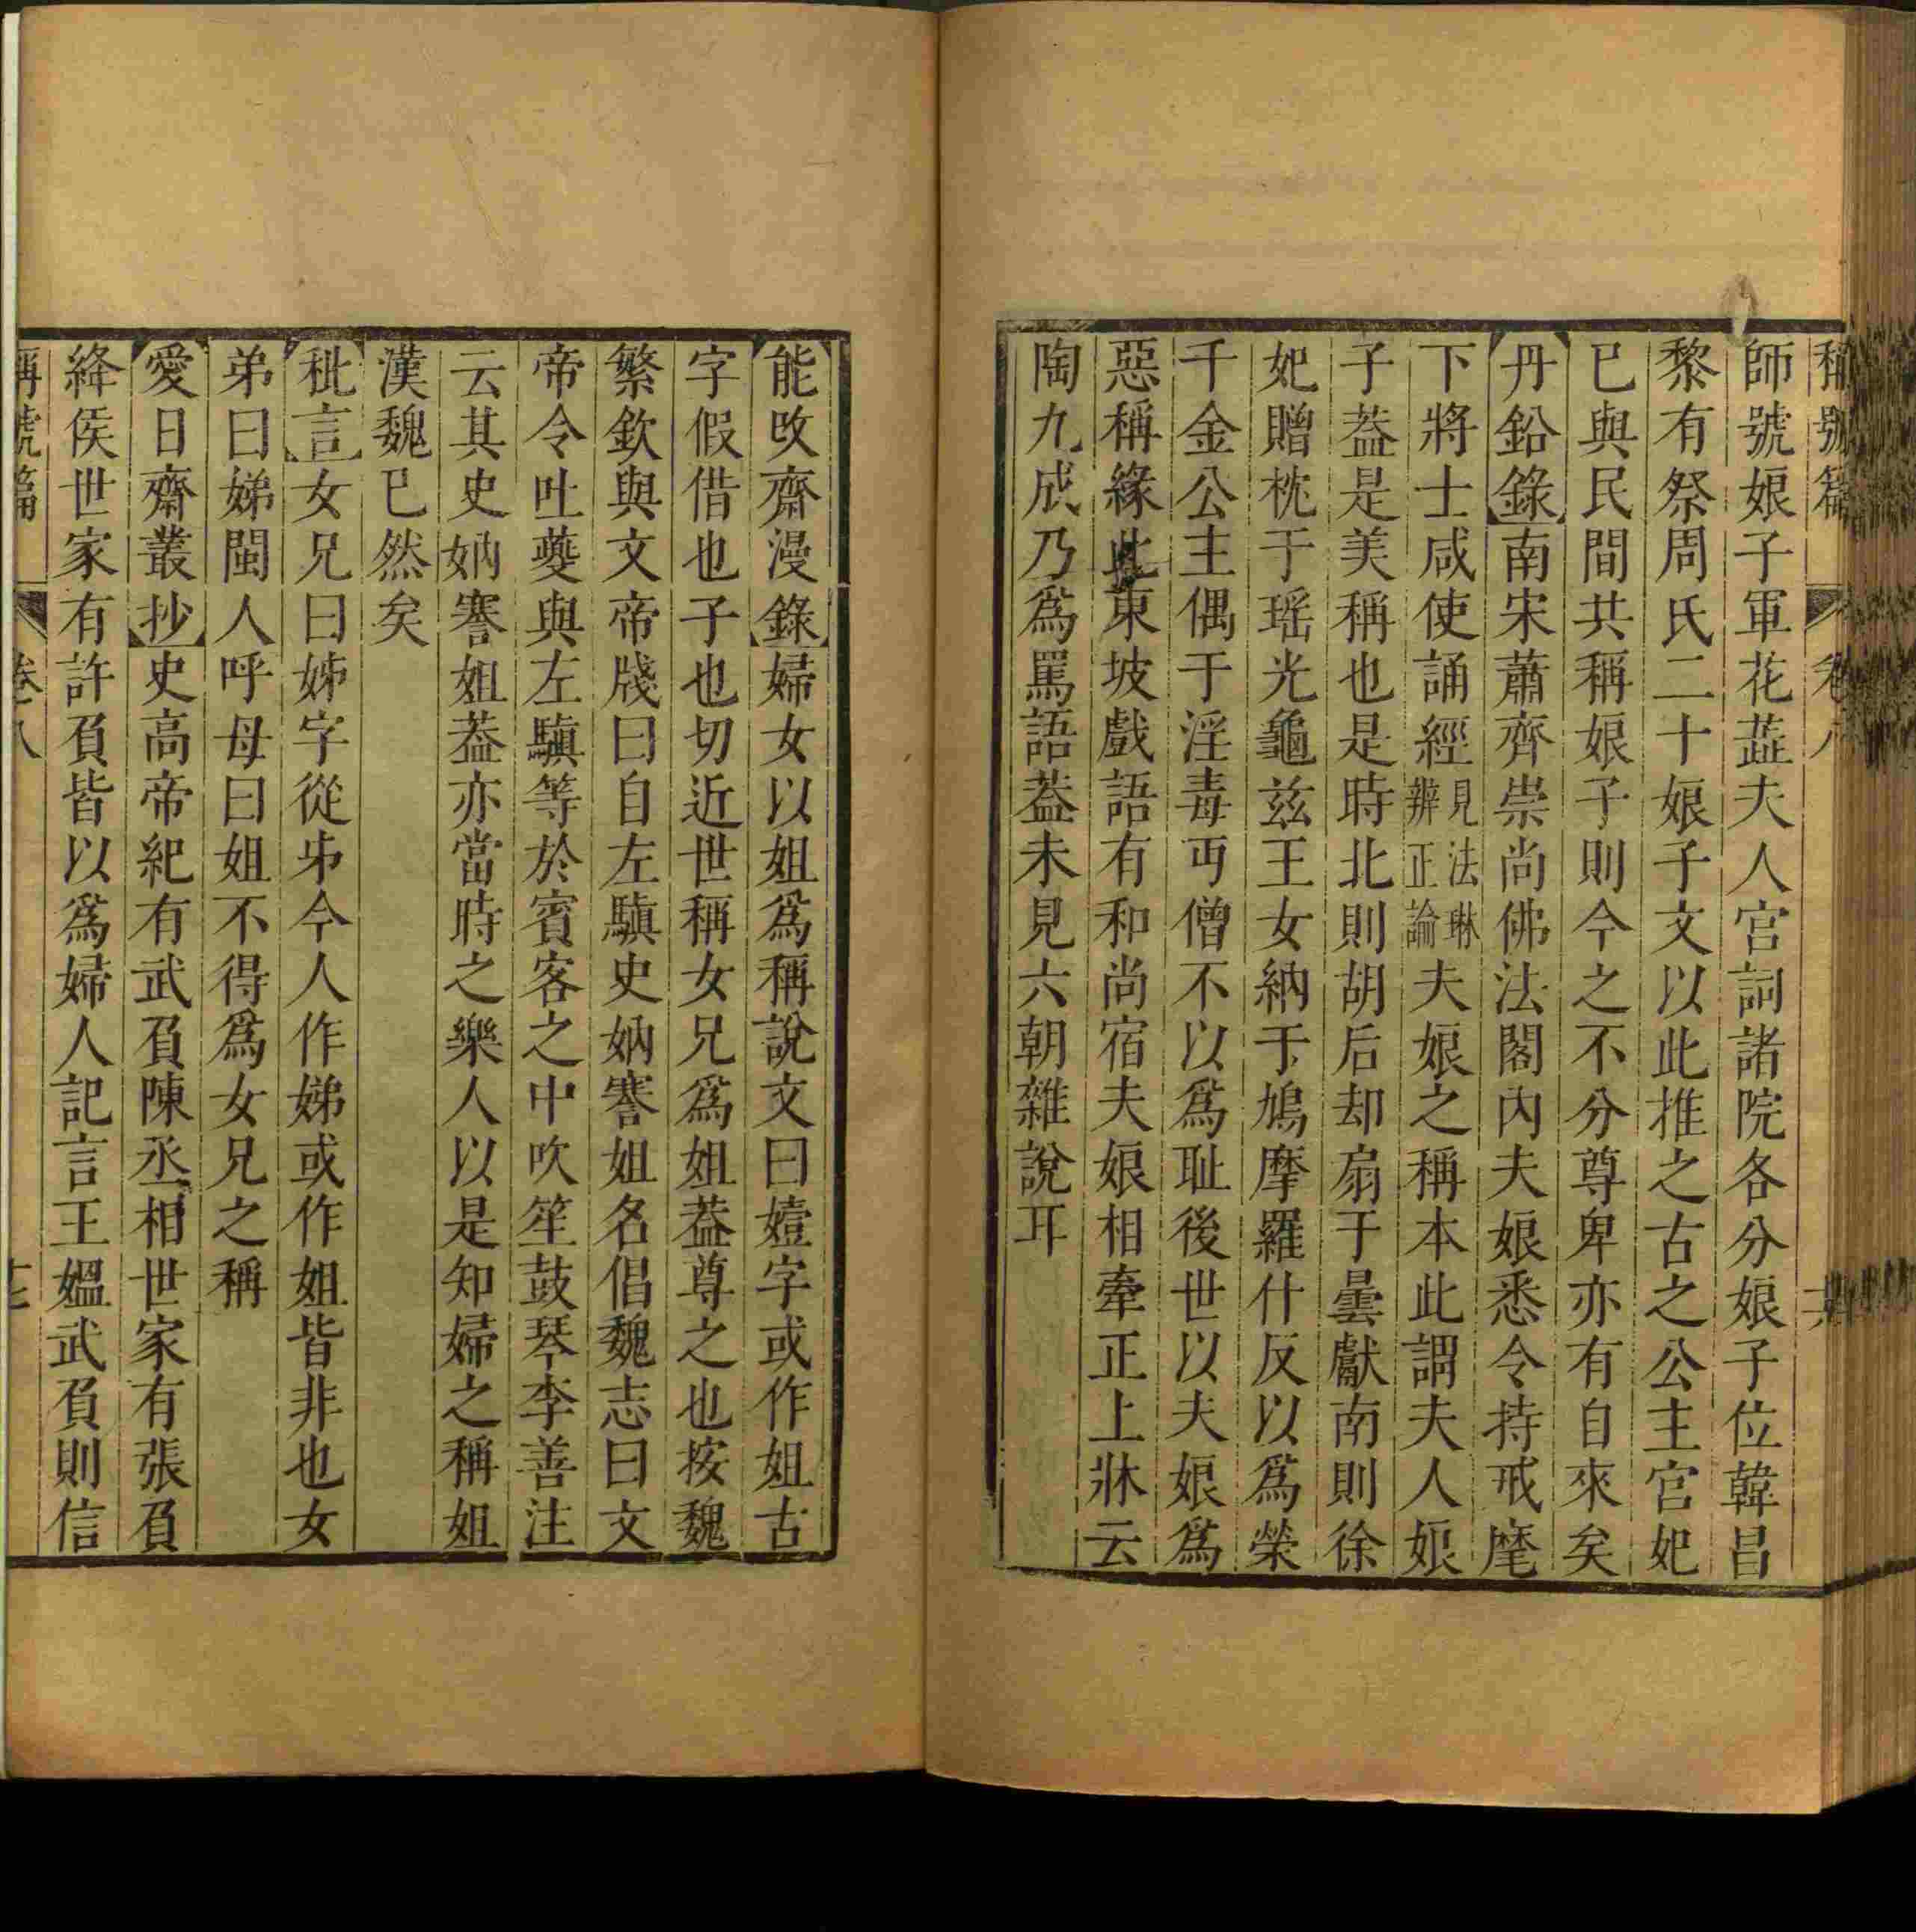 稱號篇 卷八
師號娘子軍花蕋夫人宮詞諸院各分娘子位韓昌
黎有祭周氏二十娘子文以此推之古之公主宮妃
已與民間共稱娘子則今之不分尊卑亦有自來矣
丹鉛錄南宋蕭齊崇尚佛法閣內夫娘悉令持戒麾
下將士咸使誦經見法琳辨正論夫娘之稱本此謂夫人娘
子葢是美稱也是時北則胡后却扇于曇獻南則徐
妃贈枕于瑶光龜兹王女納于鳩摩羅什反以為榮
千金公主偶于淫毒丐僧不以為耻後世以夫娘為
惡稱緣此東坡戲語有和尚宿夫娘相牽正上牀云
陶九成乃爲罵語葢未見六朝雜說耳
能改齋漫錄婦女以姐爲稱說文曰嬄字或作姐古
字假借也子也切近世稱女兄爲姐葢尊之也按魏
繁欽與文帝牋曰自左䭿史妠謇姐名倡魏志曰文
帝令吐夔與左䭿等於賓客之中吹笙鼓琴李善注
云其史妠謇姐葢亦當時之樂人以是知婦之稱姐
漢魏已然矣
秕言女兄曰姊字從㐄今人作娣或作姐皆非也女
弟曰娣閩人呼母曰姐不得爲女兄之稱
愛日齋叢抄史高帝紀有武負陳丞相世家有張負
絳侯世家有許負皆以爲婦人記言王媼武負則信
稱號篇 卷八 十七